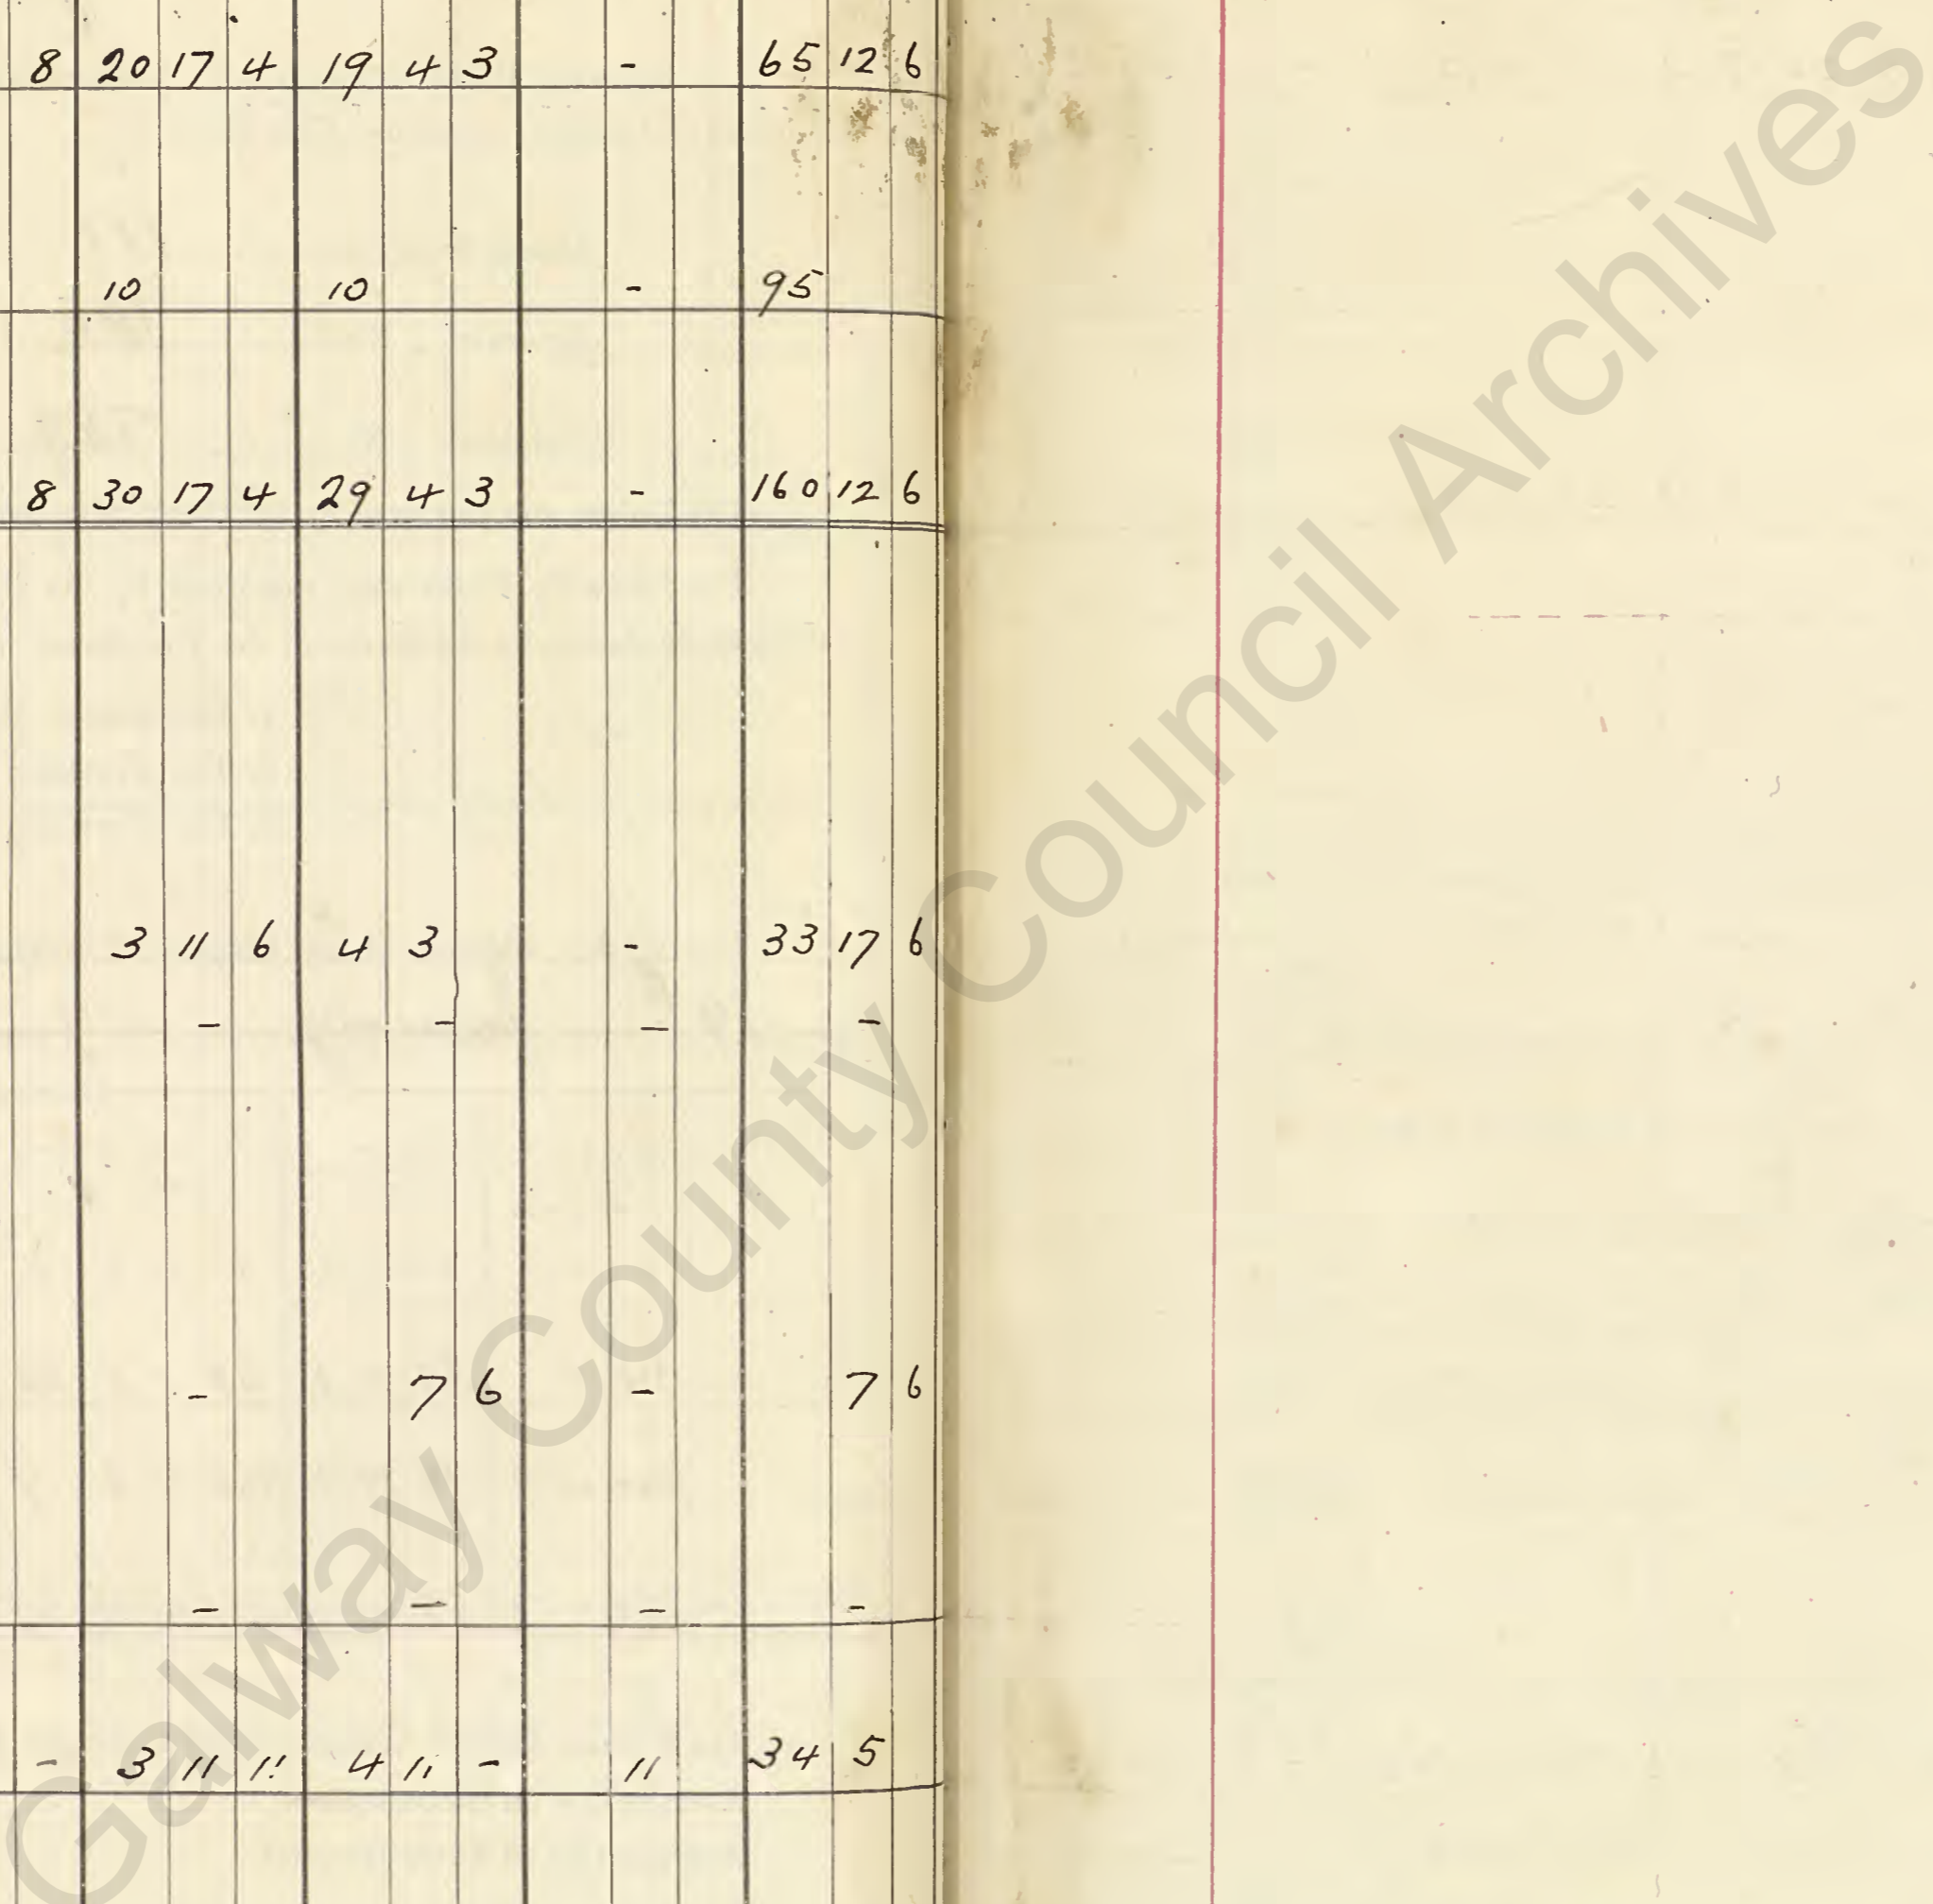 8 20 17 4 19 4 3 - 65 12 6
10 10 - 95
8 30 17 4 29 4 3 - 160 12 6
3 11 6 4 3 - 33 17 6
- - - -
- 7 6 - 7 6
- - - -
- 3 11 11 4 11 - 11 34 5
Galway County Council Archives